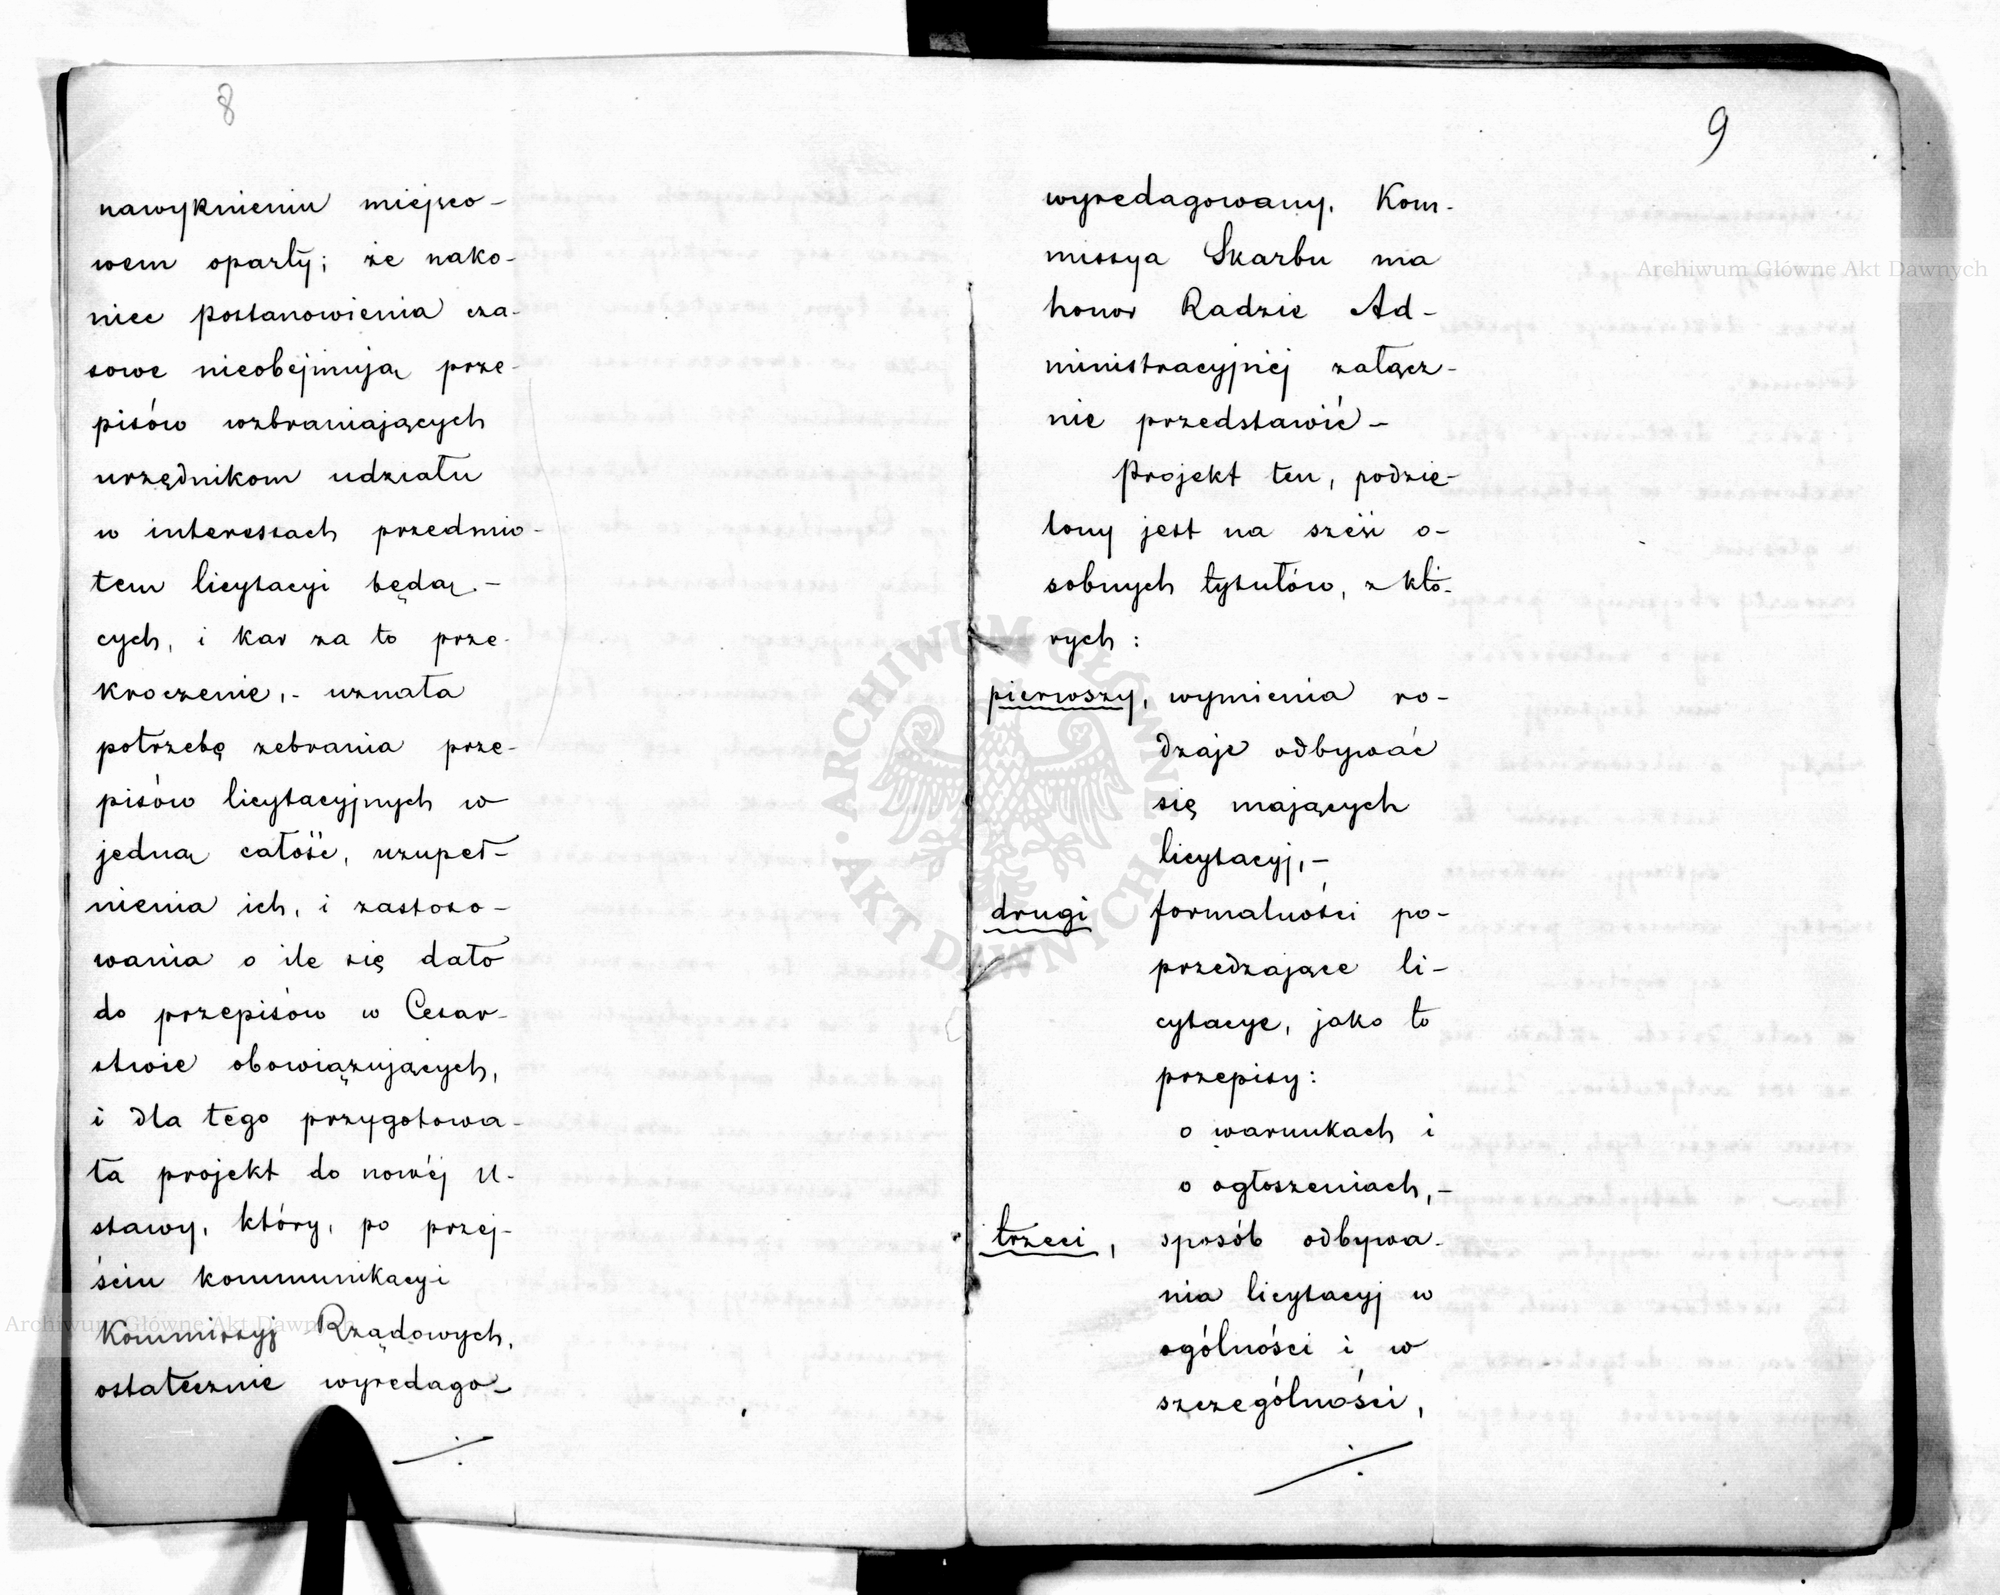 8
nawyknieniu miejsco-
wem oparty; że nako-
niec postanowienia cza-
sowe nieobejmują prze-
pisów wzbraniających
urzędnikom udziału
w interessach przedmio-
tem licytacyi będą-
cych, i kar za to prze-
kroczenie,- uznała
potrzebę zebrania prze-
pisów licytacyjnych w
jedną całość, uzupeł-
nienia ich, i zastoso-
wania o ile się dało
do przepisów w Cesar-
stwie obowiązujących,
i dla tego przygotowa-
ła projekt do nowéj U-
stawy, który, po przej-
ściu kommunikacyi
Kommissyj Rządowych,
ostatecznie wyredago-
9
wyredagowany, Kom-
missya Skarbu ma
honor Radzie Ad-
ministracyjnéj załącz-
nie przedstawić-
Projekt ten, podzie-
lony jest na sześć o-
sobnych tytułów, z któ-
rych:
pierwszy, wymienia ro-
dzaje odbywać
się mających
licytacyj,-
drugi formalności po-
przedzające li-
cytacye, jako to
przepisy:
o warunkach i
o ogłoszeniach,-
trzeci, sposób odbywa-
nia licytacyj w
ogólności i w
szczególności,
Archiwum Główne Akt Dawnych
Archiwum Główne Akt Dawnych
ARCHIWUM GŁÓWNE AKT DAWNYCH